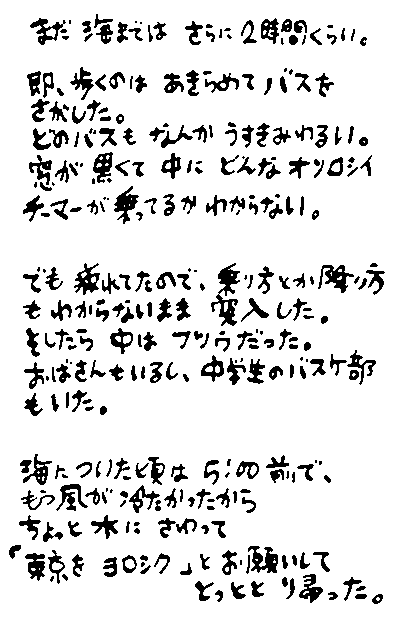 まだ 海までは さらに 2時間くらい。
即、歩くのは あきらめて バスを
さがした。
どのバスも なんか うすきみわるい。
窓が 黒くて 中に どんな オソロシイ
チーマーが 乗ってるか わからない。
でも 疲れてたので、乗り方とか 降り方
も わからないまま 突入した。
そしたら 中は フツウだった。
おばさんもいるし、中学生のバスケ部
もいた。
海に ついた頃は 5:00 前で、
もう 風が 冷たかったから
ちょっと 水に さわって
「東京を ヨロシク」と お願いして
とっとと り帰った。